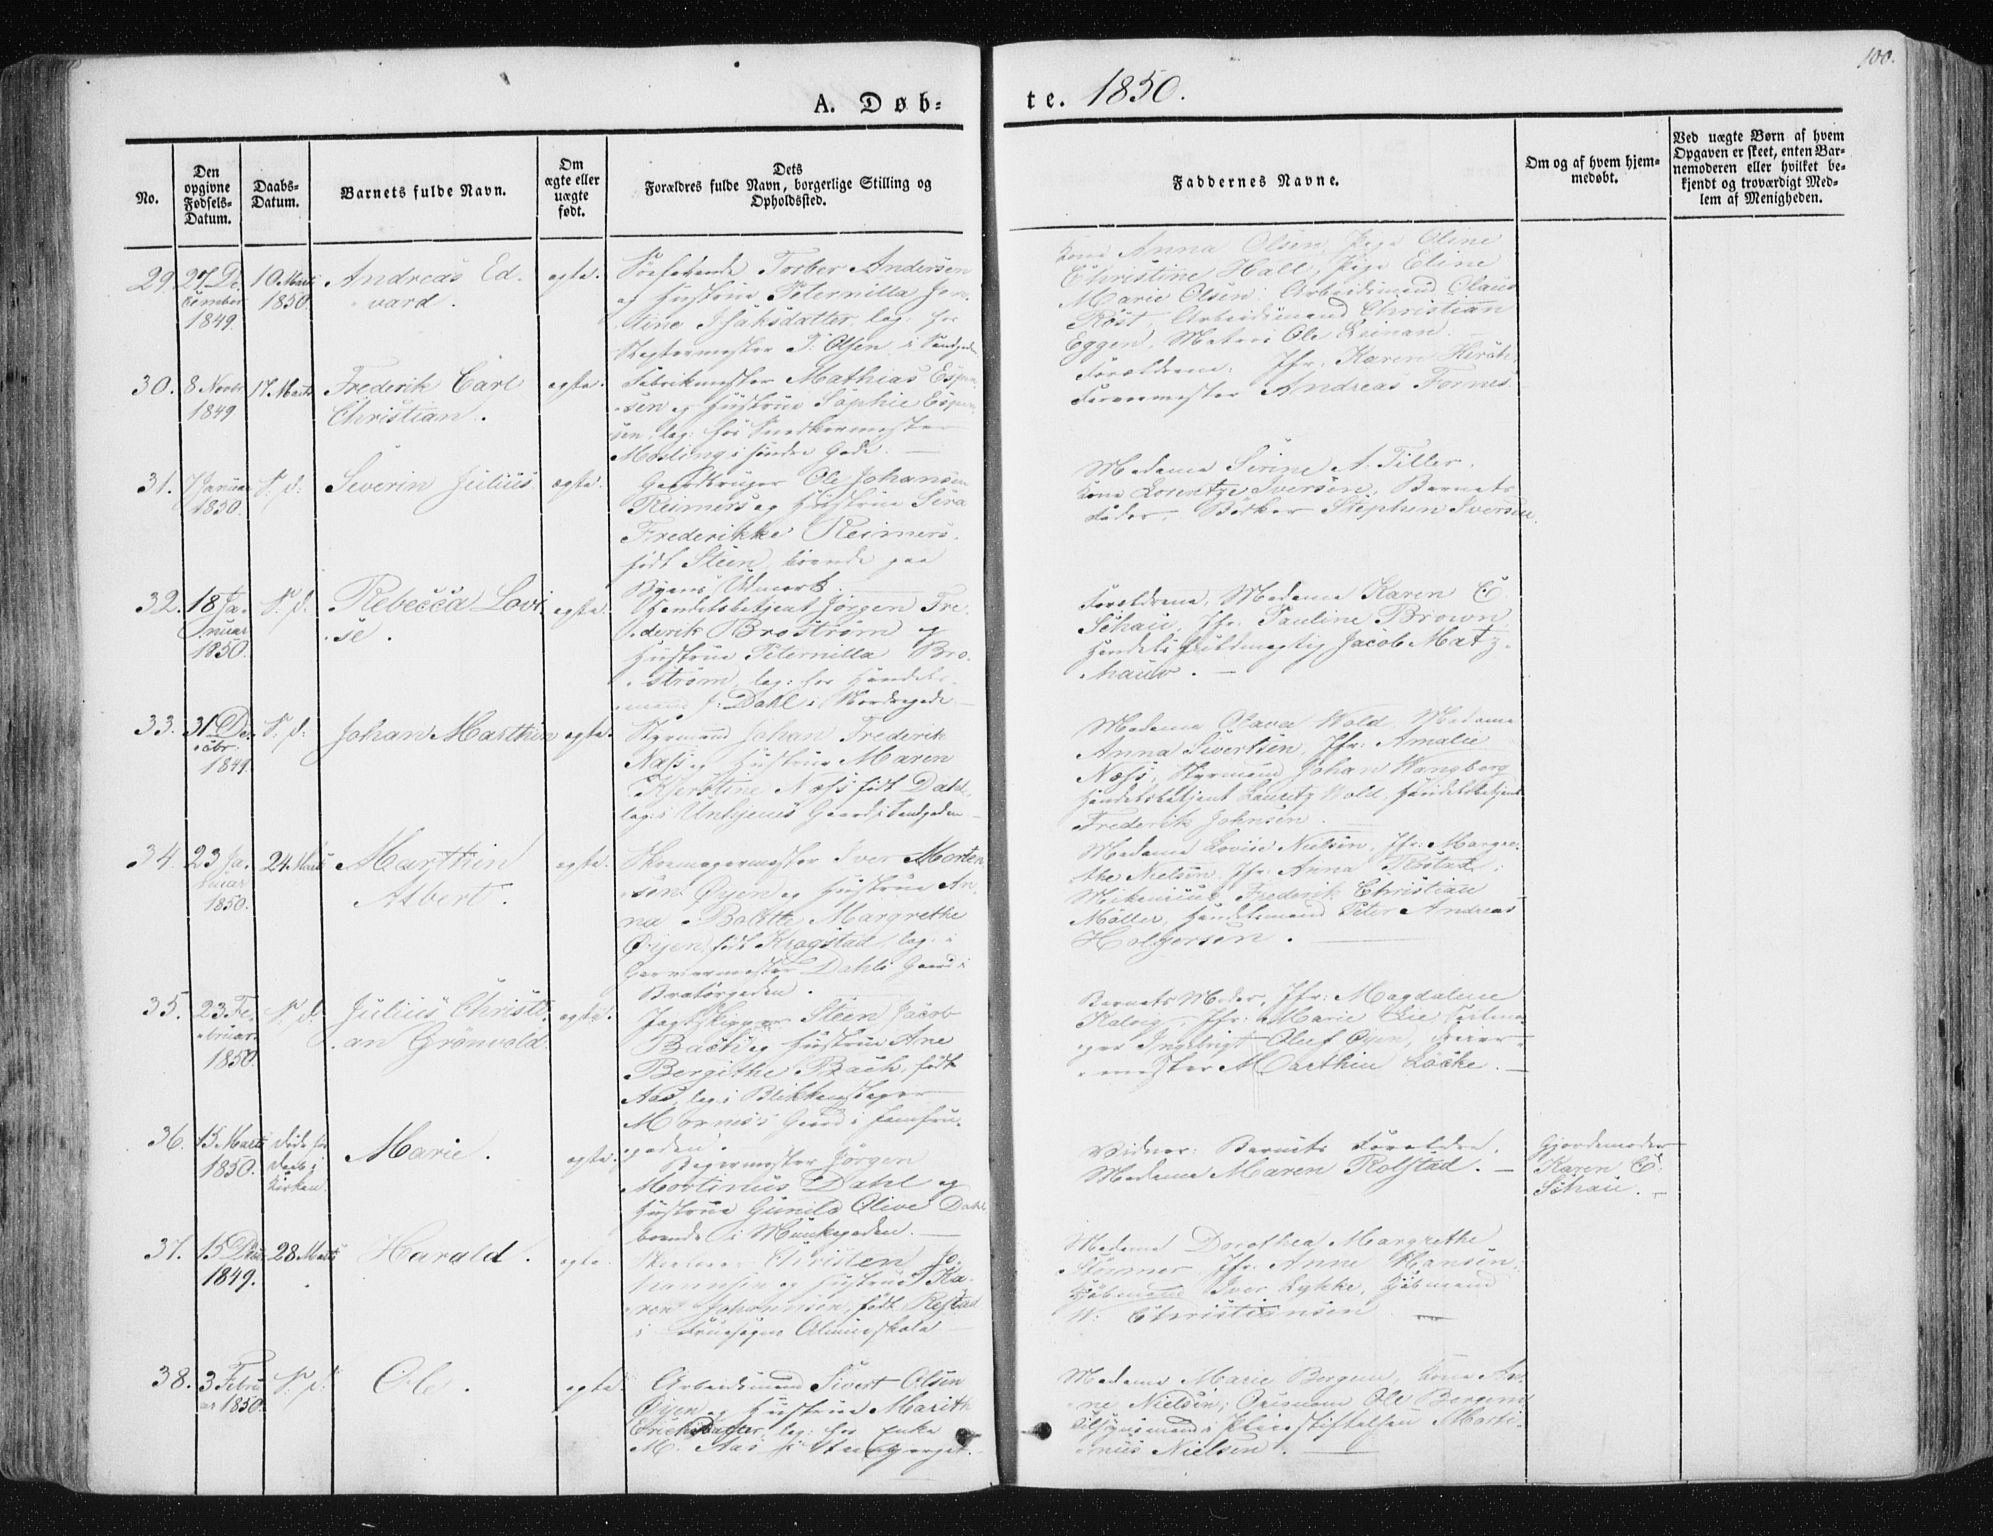 100.
A. Døb-
te. 1850.
No.
Den
opgivne
Fødsels-
Datum.
Daabs-
Datum.
Barnets fulde Navn.
Om
ægte eller
uægte
født.
Dets
Forældres fulde Navn, borgerlige Stilling og
Opholdssted.
Faddernes Navne.
Om og af hvem hjem-
medøbt.
Ved uægte Børn af hvem
Opgaven er skeet, enten Bar-
nemoderen eller hvilket be-
kjendt og troværdigt Med-
lem af Menigheden.
29. 27 De-
cember
1849.
10 Marts
1850.
Andreas Ed-
vard.
egte.
Søefarende Torber Andersen
og Hustrue Peternilla Jen-
sine Isaksdatter, log: hos
T: Olsen i Sandgaden
Kone Anna Olsen, Pige Oline
Christine Hall, Pige Eline
Marie Olsen, Arbeidsmand Claus
Röst, Arbeidsmand Christian
Eggen, Matros Ole
30. 8 Novbr
1849
17 Marts
Frederik Carl
Christian.
egte.
Fabrikmester Mathias Espen-
sen og Hustrue Sophie Espen-
sen, log: hos Snedkermester
Mosling i søndre Gade.
Forældrene, Jfr: Karen Hirsch,
Farvermester Andreas Fornes.
31. 7 Januar
1850.
S: d:
Severin Julius
ægte.
Gaardbruger Ole Johansen
Reimers og Hustrue Sira
Frederikke Reimers,
født Steen, boende paa
Byens Udmark.
Madame Sirine A. Tiller,
Kone Lorentze Iversen, Barnets
Fader, Bødker Stephen Iversen.
32. 18 Ja-
nuar
1850.
S: d:
Rebecca Lovi-
se.
egte.
Handelsbetjent Jörgen Fre-
derik Broström og
Hustrue Peternilla Bro-
ström, log: hos Handels-
mand J: Dahl i Nordregade.
Forældrene, Madame Karen C.
Schaii, Jfr. Pauline Brown
Handels fuldmægtig Jacob Matz-
33. 31 De-
cbr.
1849.
S: d:
Johan Marthin
egte.
Styrmand Johan Frederik
Næss og Hustrue Maren
Kjerstine Næss født Dahl,
log: i Gaard i Sandgaden
Madame Olava Wold, Madame
Anna Sivertsen, Jfr: Amalie
Næss, Styrmand Johan Wangberg
Handelsbetjent Lauritz Wold, Handelsbetjent
Frederik Johnsen.
34. 23 Ja-
nuar
1850.
24 Marts
Marthin
Albert.
egte.
Skomagermester Iver Morten-
sen Øyen og Hustrue An-
na Bolette Margrethe
Øyen, født Krogstad, log: i
Garvermester Dahls Gaard i
Bratörgaden.
Madame Lovise Nielsen, Jfr: Margre-
the Nielsen, Jfr: Anna
Frederik Christian
Möller, Handelsmand Peter Andreas
Holgersen.
35. 23 Fe-
bruar
1850.
S: d:
Julius Christi-
an Grönvold.
egte.
Jagtskipper Steen Jacob
Bach og Hustrue Ane
Bergithe Bach, født
Aas, log: i Blikkenslager
Gaard i Jomfru-
gaden.
Barnets Moder, Jfr: Magdalene
Kalvig, Jfr: Marie Lie
Ingebrigt Oluf Øyen,
mester Marthin Löcke.
36. 15 Marts
1850.
døde før
Daab i
Kirken.
Marie.
egte.
Bagermester Jörgen
Mortinus Dahl og
Hustrue Gunild Olive Dahl
boende i Munkegaden.
Vidner: Barnets Forældre,
Madame Maren Rolstad.
Gjordemoder
Karen C:
Schaii.
37. 15 Decbr
1849.
28 Marts
Harald.
egte.
Christen Jo-
hannsen og Hustrue Ka-
ren Johannsen, født Restad
i Fruesogns Almueskole
Madame Dorothea Margrethe
Störmer, Jfr: Anne Hansen,
Kjöbmand Iver Lykke, Kjöbmand
W: Christiansen
38. 3 Febru-
ar 1850.
S: d:
Ole.
egte.
Arbeidsmand Sivert Olsen
Øyen og Hustrue Marith
Erichsdatter, log: hos Enke
M. Aas i
Madame Marie Bergem, Kone An-
ne Nielsen, Ole Bergem
Tilsynsmand i Pleiestiftelsen Marti-
nus Nielsen.